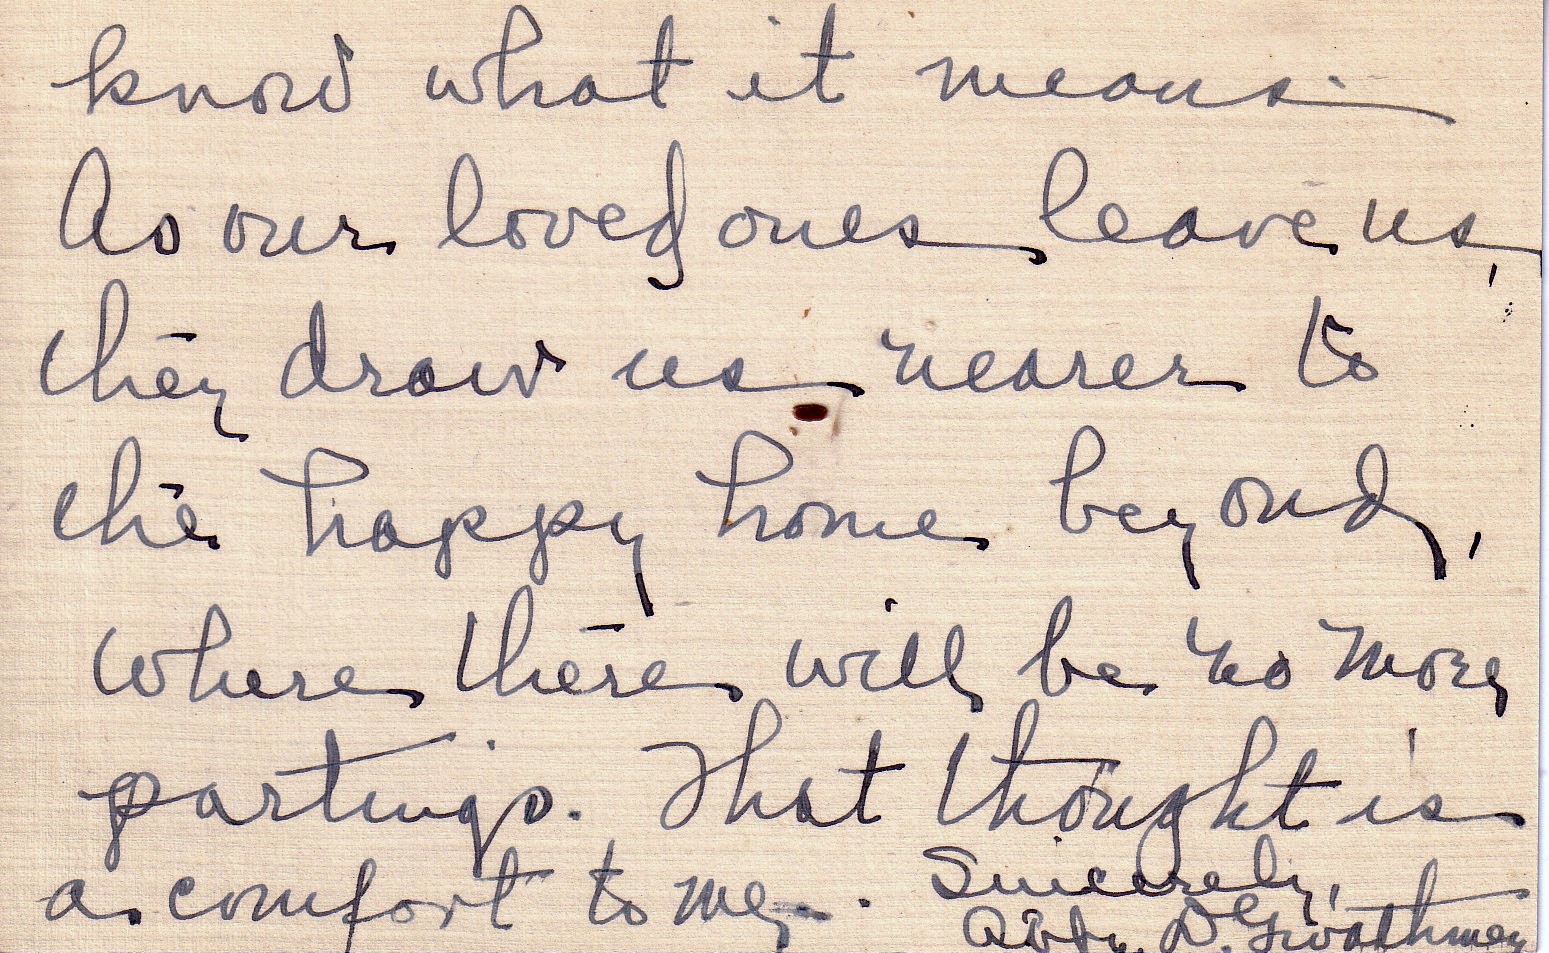 know what it means.
As our loved ones leave us,
they draw us nearer to
the happy home beyond,
where there will be no more
partings. That thought is
a comfort to me. Sincerely,
Abby D. Gwathmey